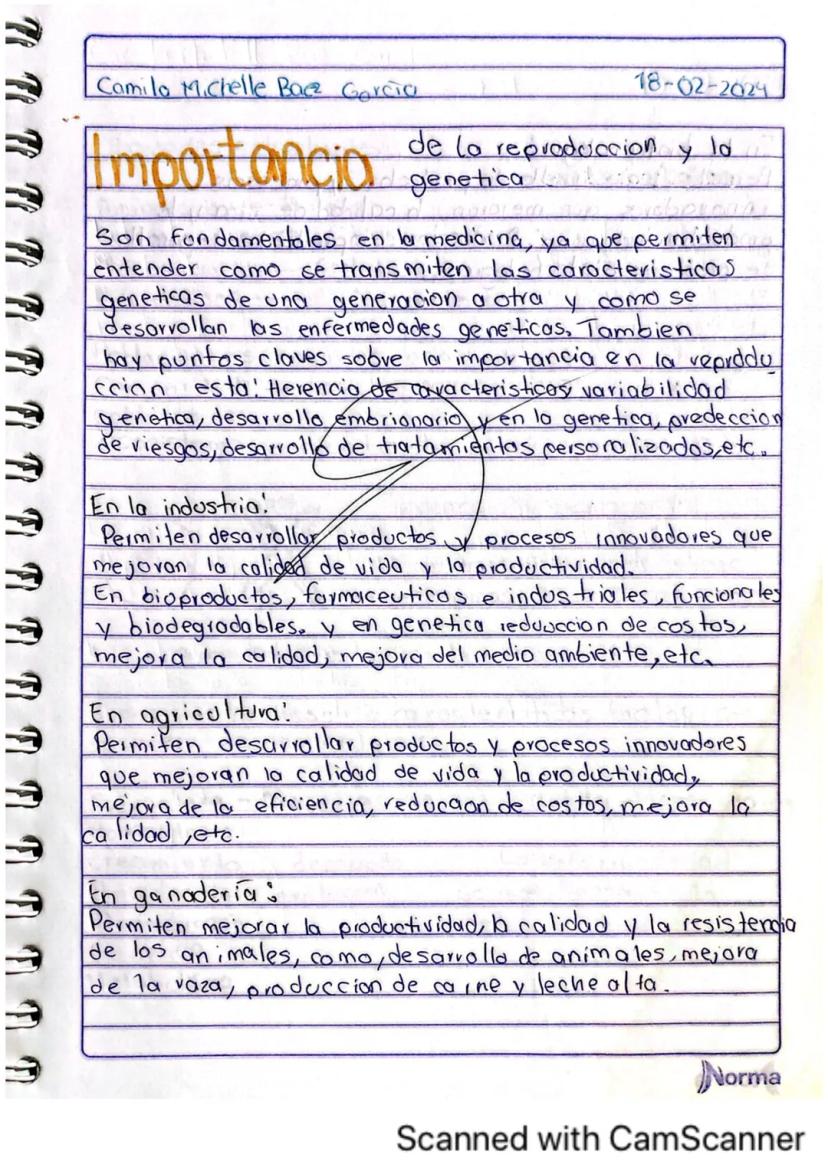 Camila Michelle Baez Garcia 18-02-2024
Importancia de la reproduccion y la
genetica
Son fundamentales en la medicina, ya que permiten
entender como se transmiten las caracteristicas
geneticas de una generacion a otra y como se
desarrollan las enfermedades geneticas. Tambien
hay puntos claves sobre la importancia en la reprodu
ccion esta: Herencia de caracteristicas, variabilidad
genetica, desarrollo embrionario y en la genetica, predeccion
de riesgos, desarrollo de tratamientos personalizados, etc.
En la industria:
Permiten desarrollar productos y procesos innovadores que
mejoran la calidad de vida y la productividad.
En bioproductos, farmaceuticos e industriales, funcionales
y biodegradables. y en genetica reduccion de costos,
mejora la calidad, mejora del medio ambiente, etc.
En agricultura:
Permiten desarrollar productos y procesos innovadores
que mejoran la calidad de vida y la productividad,
mejora de la eficiencia, reduccion de costos, mejora la
calidad, etc.
En ganadería:
Permiten mejorar la productividad, la calidad y la resistencia
de los animales, como, desarrollo de animales, mejora
de la raza, produccion de carne y leche alta.
Norma
Scanned with CamScanner